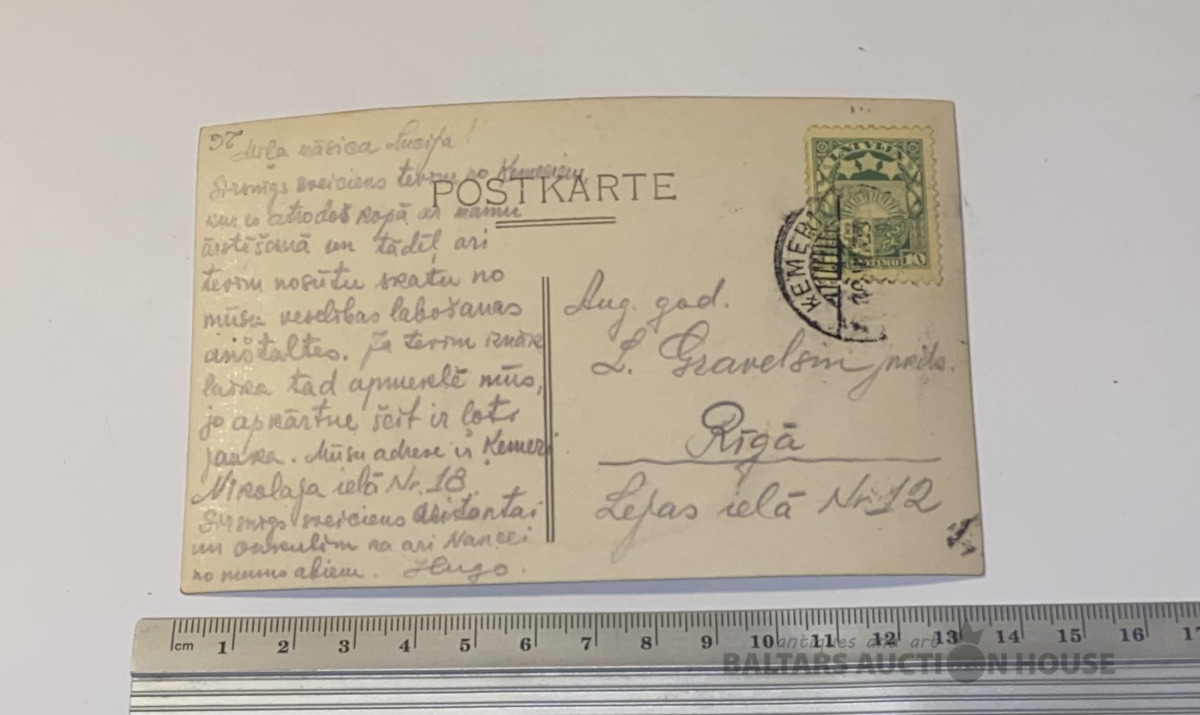 26
Mīļa māsiņa Lucija!
Sirsnīgs sveiciens tevim no Ķemeriem,
kur es atrodos kopā ar mammu
ārstēšanā un tādēļ arī
tevim nosūtu skatu no
mūsu veselības labošanas
anštaltes. Ja tevim iznāk
laika tad apmeklē mūs,
jo apkārtne šeit ir ļoti
jauka. Mūsu adrese ir Ķemeri
Nikolaja ielā Nr. 18.
Sirsnīgs sveiciens
un onkulim kā arī
no mums abiem. Hugo.
POSTKARTE
LATVIJA
10
ĶEMERI
Aug. god.
L. Gravelsin
Rīgā
Lejas ielā Nr. 12
cm 1 2 3 4 5 6 7 8 9 10 11 12 13 14 15 16 17
antiques and art
BALTARS AUCTION HOUSE